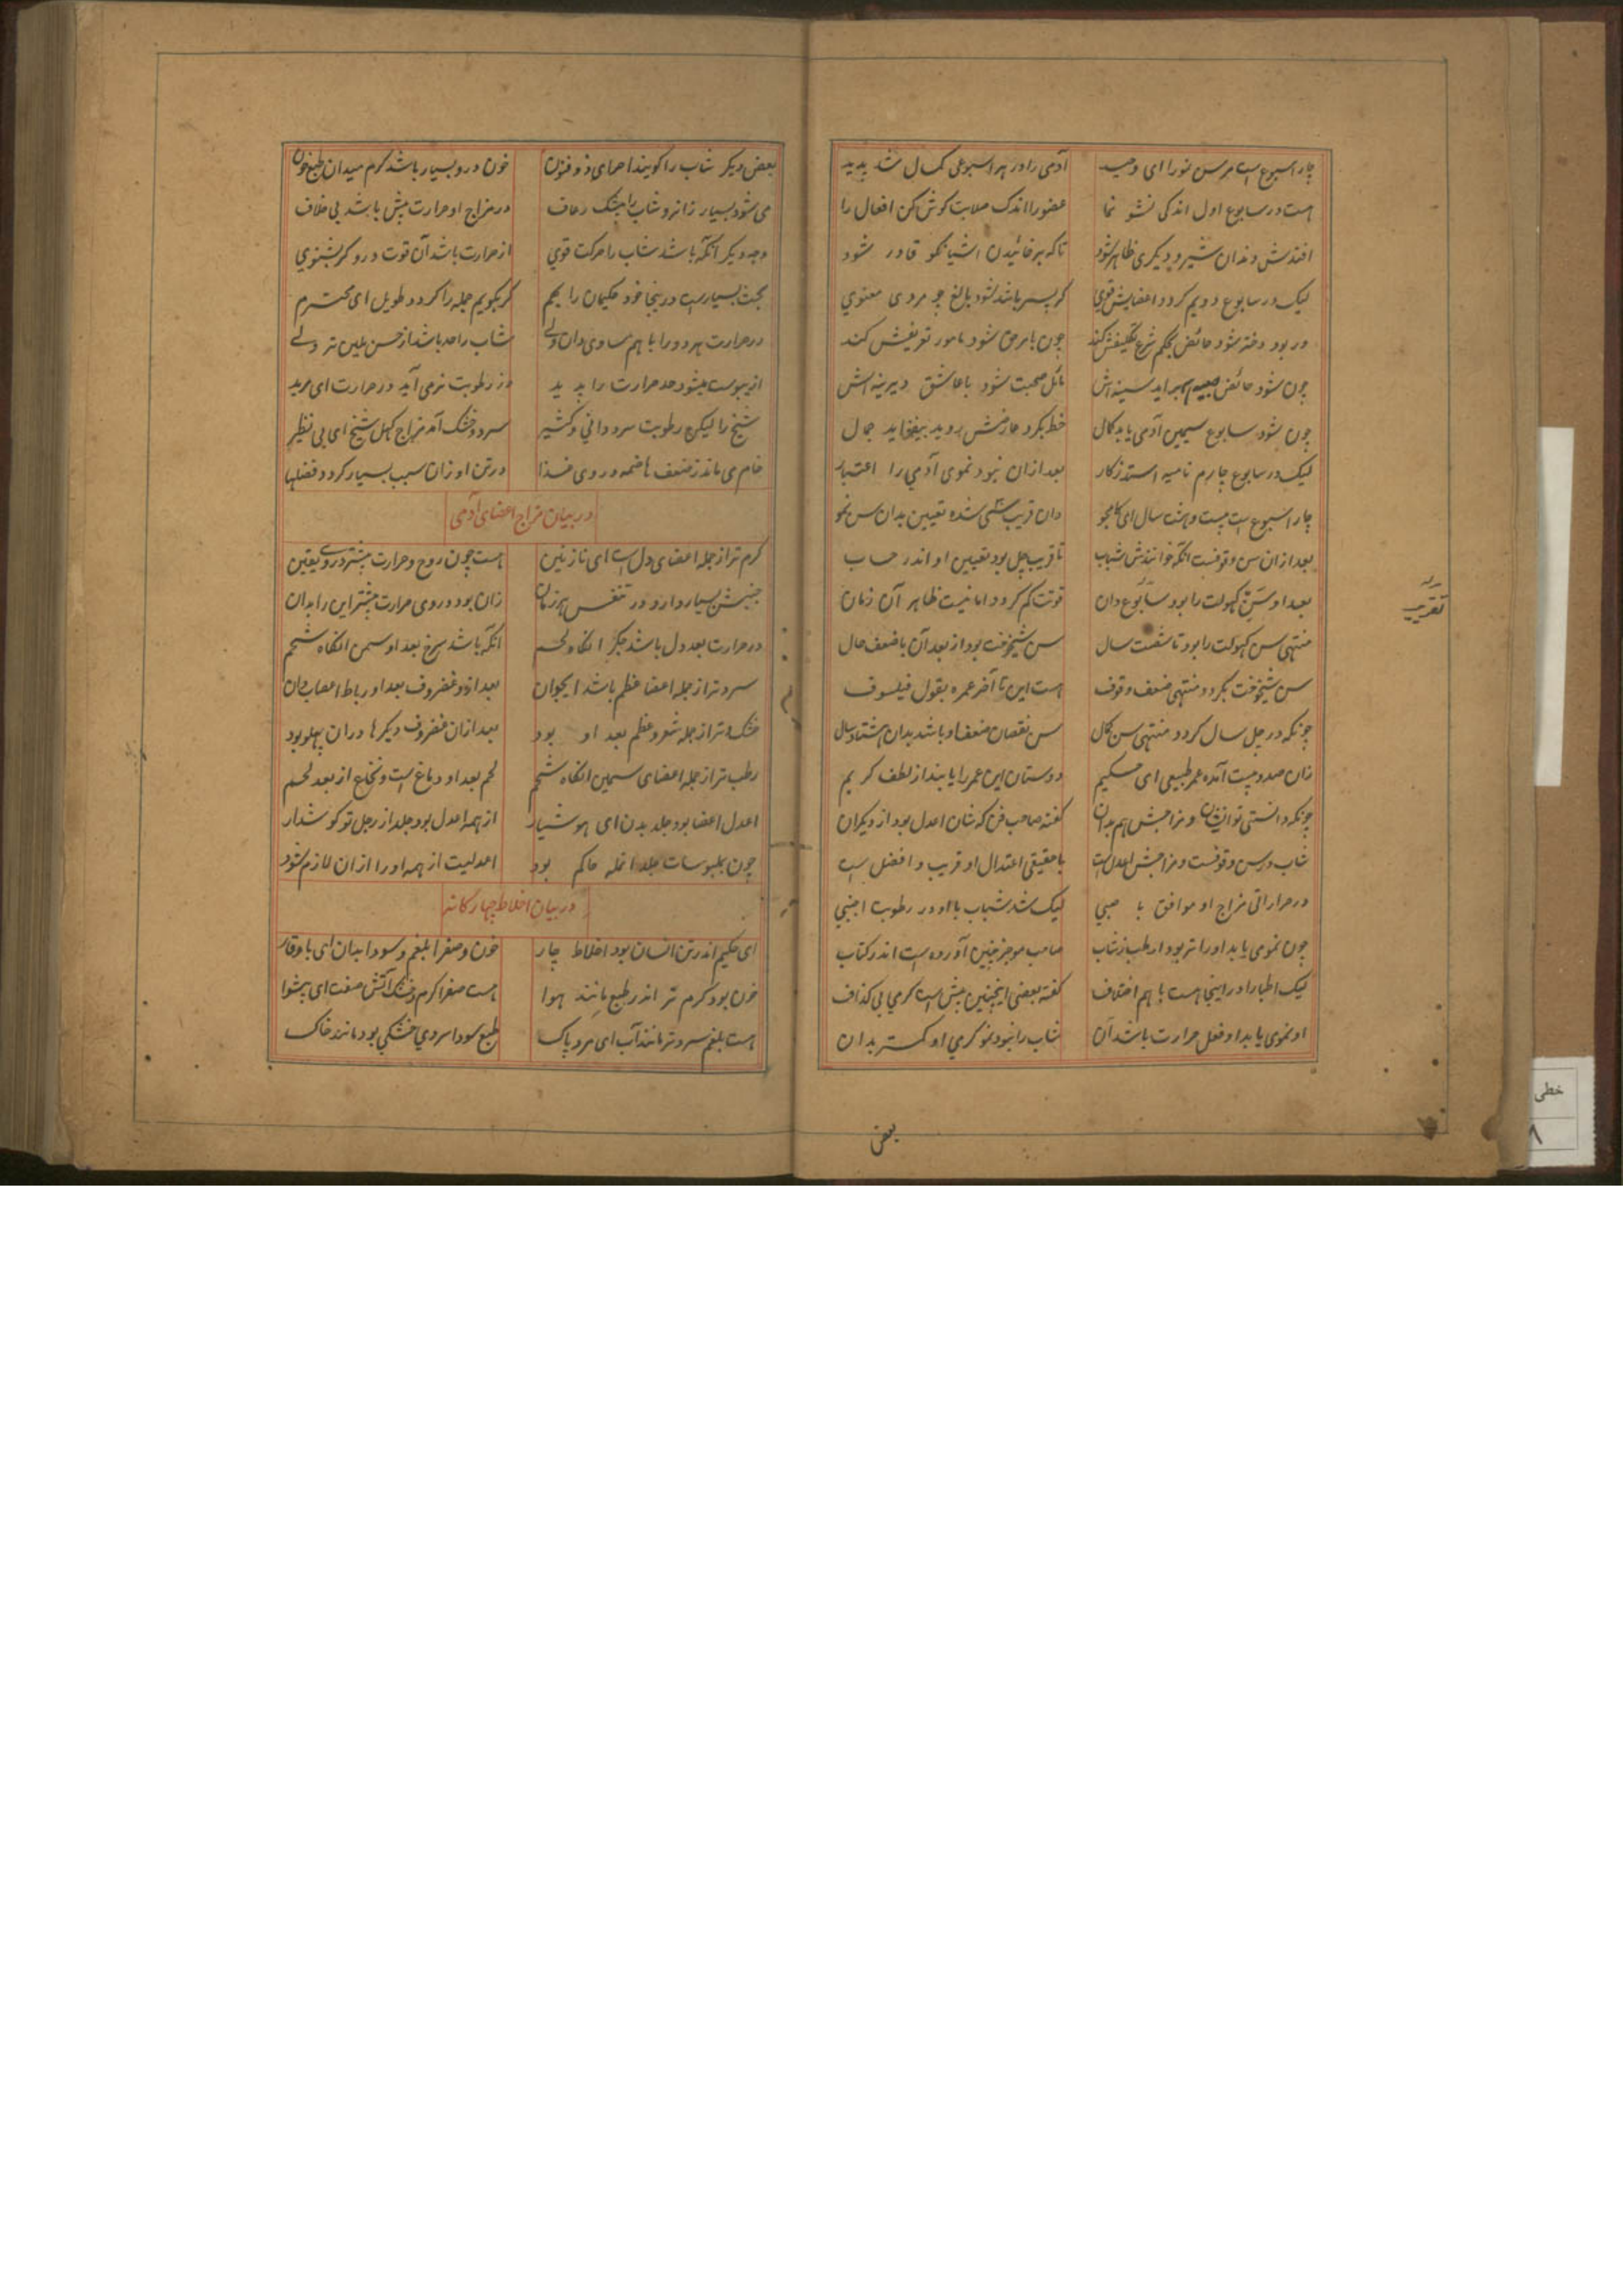 چار اسبوع است مر سن نمو را ای وحید آدمی را در هر اسبوعی کمال شد پدید
هست در سابوع اول اندکی نشو نما عضو را اندک صلابت گوش کن افعال را
افتدش دندان شیر و دیگری ظاهر شود تا که بر خائیدن اشیا نکو قادر شود
لیک در سابوع دویم گردد اعضایش قوی گر پسر باشد شود بالغ چو مردی معنوی
ور بود دختر شود حائض بحکم شرع تکلیفش کند
چون شود حائض سینه اش مائل صحبت شود با عاشق دیرینه اش
چون شود سابوع سیمین آدمی یابد کمال خط بگرد عارضش روید بیفزاید جمال
لیک در سابوع چارم نامیه استد ز کار بعد ازان نبود نموی آدمی را اعتبار
چار اسبوع است بیست و هشت سال ای کامجو دان قریب سی شده تعیین بدان سن نمو
بعد ازان سن وقوفست آنکه خوانندش شباب تا قریب چل بود تعیین او اندر حساب
بعد او سن کهولت را بود سابوع دان قوتت کم گردد اما نیست ظاهر آن زمان
منتهی سن کهولت را بود تا شصت سال سن شیخوخت بود از بعد آن با ضعف حال
سن شیخوخت بگردد منتهی ضعف وقوف هست این تا آخر عمره بقول فیلسوف
چونکه در چل سال گردد منتهی سن کمال سن نقصان ضعف او باشد بدان هشتاد سال
زان صد و بیست آمده عمر طبیعی ای حکیم دوستان این عمر را یابند از لطف کریم
چونکه دانستی تو ایشان و مزاجش هم بدان گفته صاحب فن که شان اعدل بود از دیگران
شاب در سن وقوفست و مزاجش اعدل است با حقیقی اعتدال او قریب و افضل است
در حرارتی مزاج او موافق با صبی لیک شد شباب با او در رطوبت اجنبی
چون نموی یابد او را تر بود ارطب ز شاب صاحب موجز چنین آورده است اندر کتاب
لیک اطبا را در اینجا هست با هم اختلاف گفته بعضی اینچنین بیش است گرمی بی گذاف
او نموی یابد او فعل حرارت باشد آن شاب را نبود نمو گرمی او کمتر بدان
بعض
تقریب
بعض دیگر شاب را گویند احمای ذوفنون خون درو بسیار باشد گرم میدان طبع خون
می شود بسیار زانرو شاب را بیشک رعاف در مزاج او حرارت بیش باشد بی خلاف
وجه دیگر آنکه باشد شاب را حرکت قوی از حرارت باشد آن قوت درو گر بشنوی
بحث بسیار است در اینجا خود حکیمان را بهم گر بگویم جمله را گردد طویل ای محترم
در حرارت هر دو را با هم مساوی دان ولی شاب را حد باشد از حس لمین تر ولی
از یبوست میشود حد حرارت را پدید وز رطوبت نرمی آید در حرارت ای مرید
شیخ را لیکن رطوبت سرد دانی و کثیر سرد و خشک آمد مزاج کهل شیخ ای بی نظیر
خام می ماند ز ضعف هاضمه در وی غذا در تن او زان سبب بسیار گردد فضلها
در بیان مزاج اعضای آدمی
گرم تر از جمله اعضای دل است ای نازنین هست چون روح و حرارت بیشتر در وی یقین
جنبش بسیار دارد در تنفس هر زمان زان بود در وی حرارت بیشتر این را بدان
در حرارت بعد دل باشد جگر انگاه لحم آنکه باشد سرخ بعد او سمن انگاه شحم
سرد تر از جمله اعضا عظم باشد ایجوان بعد ازو غضروف بعد او رباط اعصاب دان
خشک تر از جمله شعر و عظم بعد او بود بعد ازان غضروف دیگرها دران پهلو بود
رطب تر از جمله اعضای سمین انگاه شحم لحم بعد او دماغ است و نخاع از بعد لحم
اعدل اعضا بود جلد بدن ای هوشیار از همه اعدل بود جلد از رجل تو گوش دار
چون بملبوسات جلد انمله حاکم بود اعدلیت از همه او را ازان لازم شود
در بیان اخلاط چهارگانه
ای حکیم اندر تن انسان بود اخلاط چار خون و صفرا بلغم و سودا بدان ای با وقار
خون بود گرم تر اندر طبع مانند هوا هست صفرا گرم و خشک آتش صفت ای پیشوا
هست بلغم سرد تر مانند آب ای مرد پاک طبع سودا سردی خشکی بود مانند خاک
خطی
۸